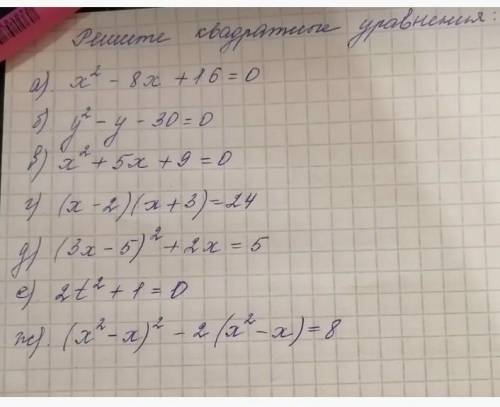 Решите квадратные уравнения:
а) x² - 8x + 16 = 0
б) y² - y - 30 = 0
в) x² + 5x + 9 = 0
г) (x - 2)(x + 3) = 24
д) (3x - 5)² + 2x = 5
е) 2t² + 1 = 0
ж). (x² - x)² - 2(x² - x) = 8